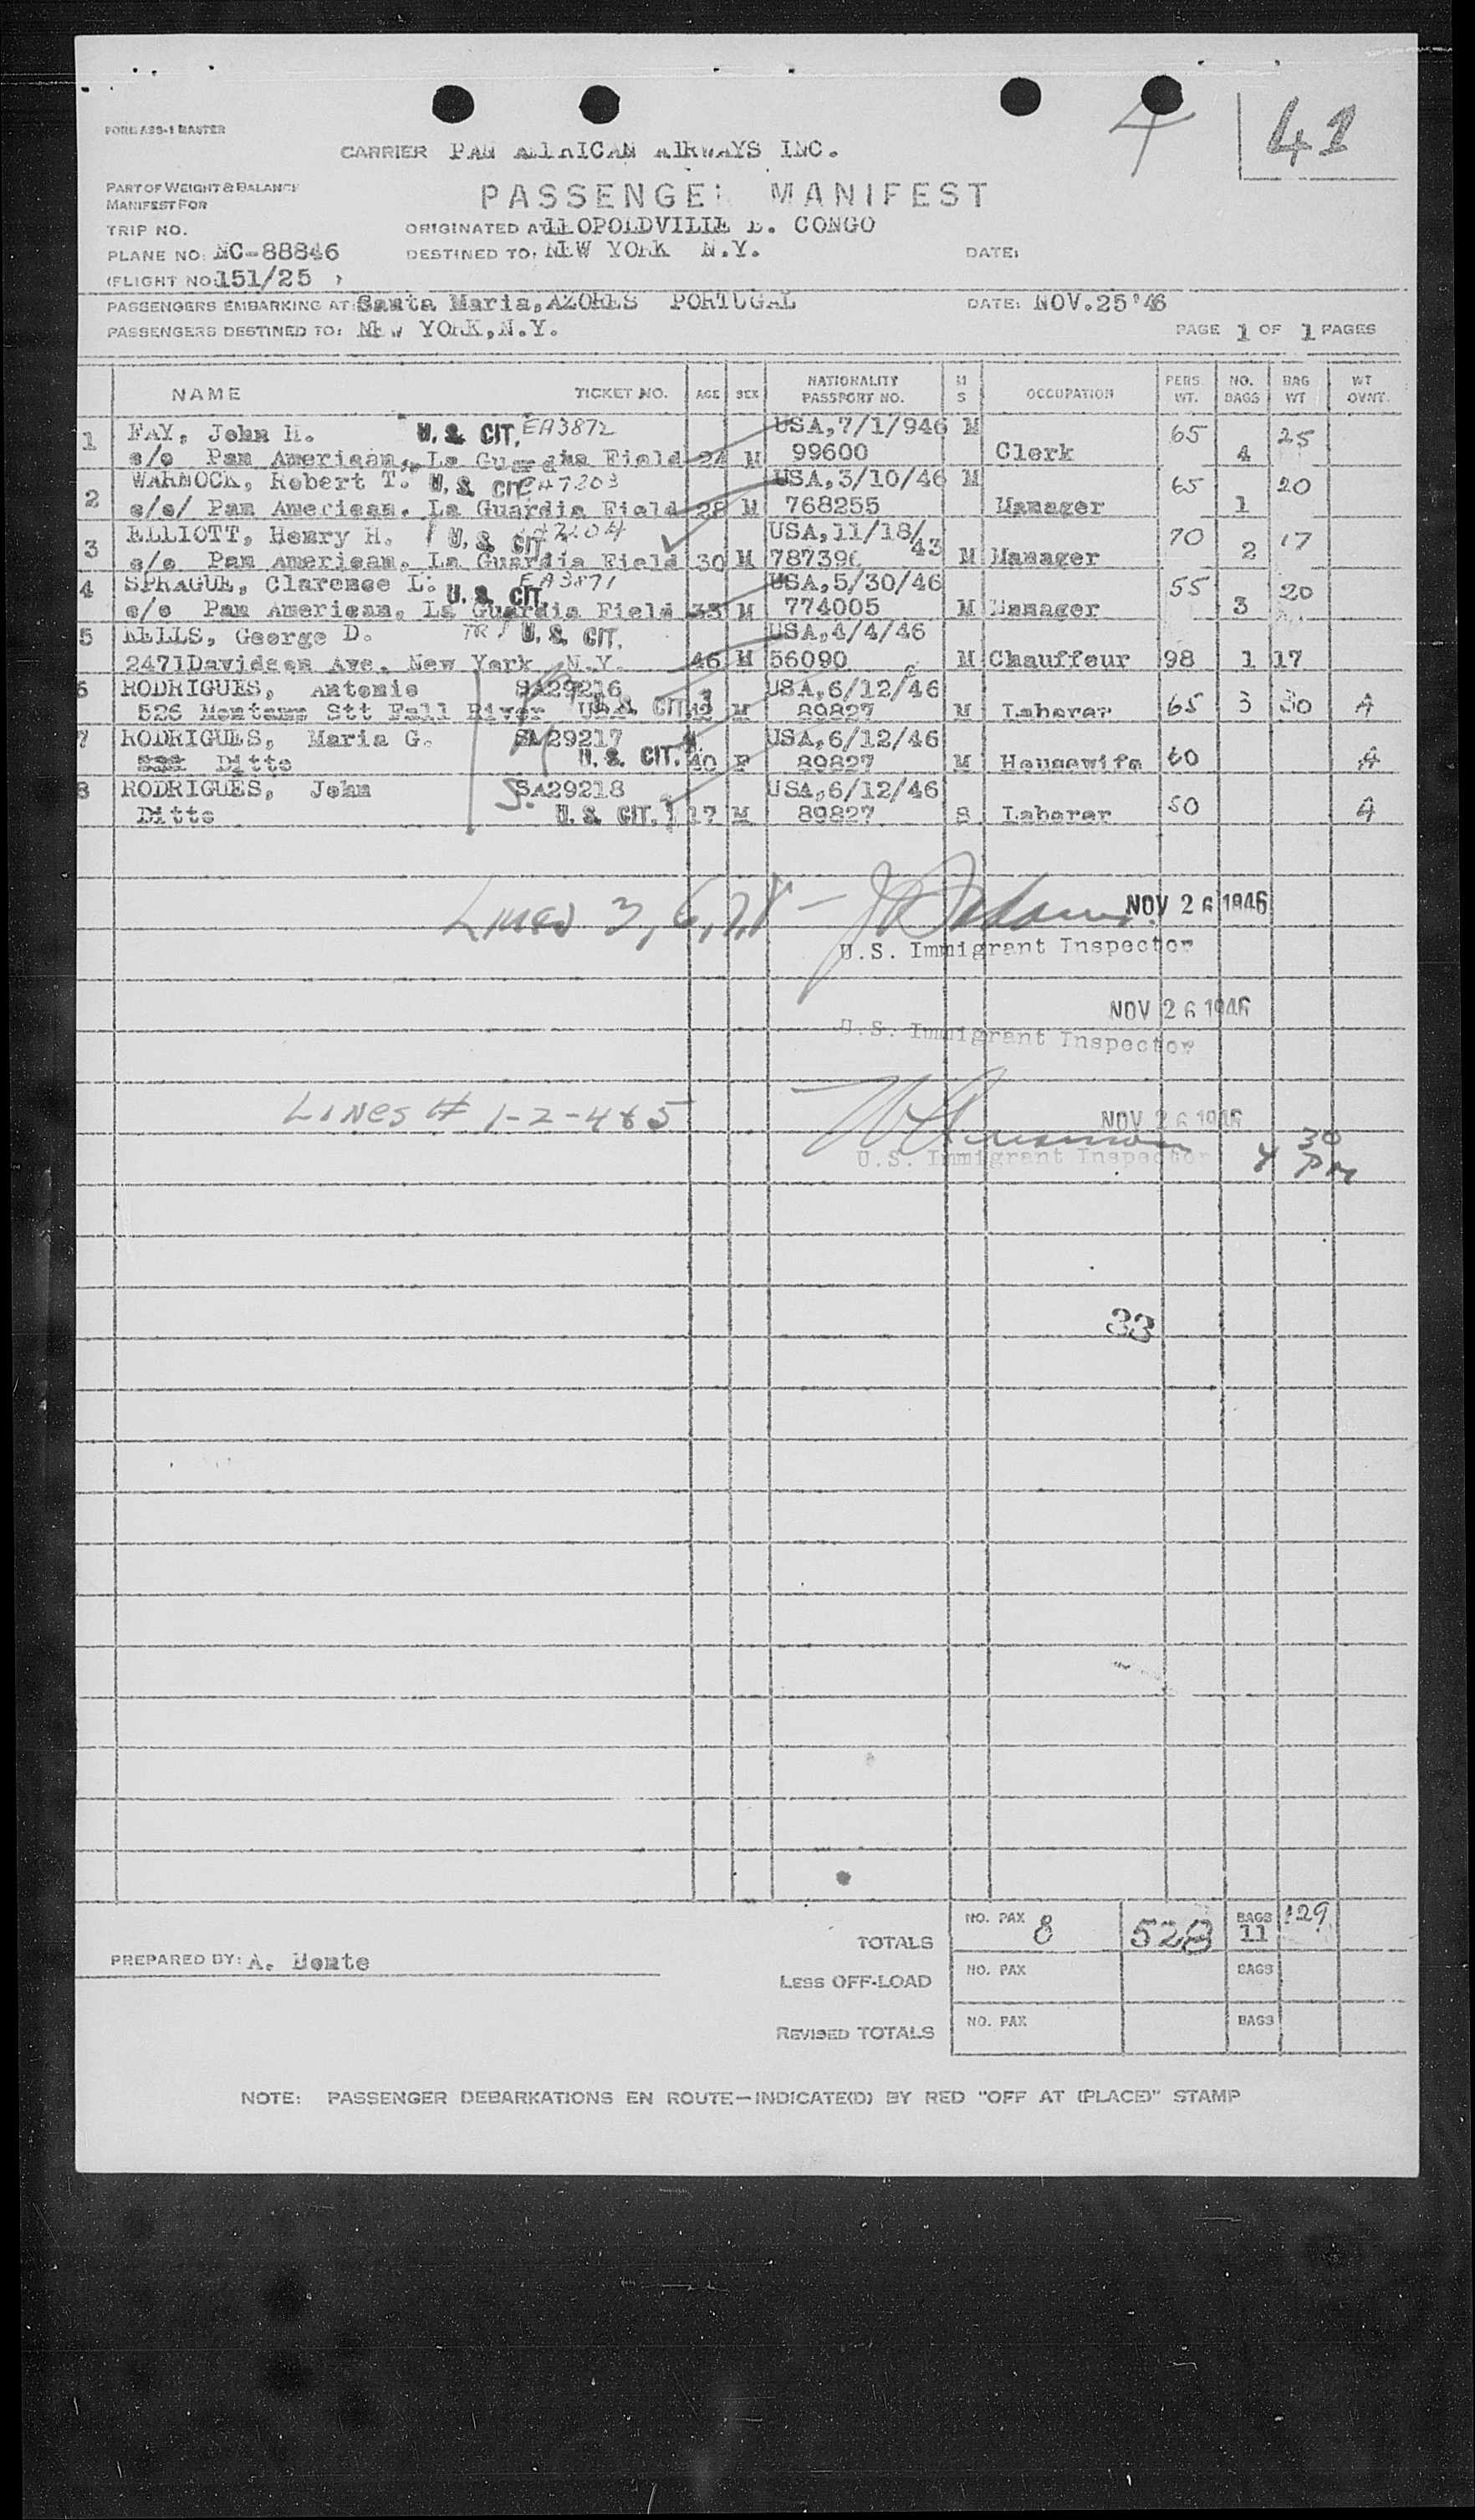 4
41
FORM ASS-1 MASTER
CARRIER PAN AMERICAN AIRWAYS INC.
PART OF WEIGHT & BALANCE
MANIFEST FOR
PASSENGER MANIFEST
TRIP NO. ORIGINATED AT: LEOPOLDVILLE B. CONGO
PLANE NO: NC-88846 DESTINED TO: NEW YORK N.Y. DATE:
(FLIGHT NO: 151/25 )
PASSENGERS EMBARKING AT: Santa Maria, AZORES PORTUGAL DATE: NOV.25'46
PASSENGERS DESTINED TO: NEW YORK,N.Y. PAGE 1 OF 1 PAGES
NAME TICKET NO. AGE SEX NATIONALITY PASSPORT NO. M S OCCUPATION PERS. WT. NO. BAGS BAG WT WT OVNT.
1 FAY, John H. U. S. CIT. EA3872 USA,7/1/946 M 65 25
c/o Pan American, La Guardia Field 24 M 99600 Clerk 4
2 WARNOCK, Robert T. U. S. CIT. EA7203 USA,3/10/46 M 65 20
c/o/ Pan American. La Guardia Field 28 M 768255 Manager 1
3 ELLIOTT, Henry H. U. S. CIT. USA,11/18/43 70 17
c/o Pan American. La Guardia Field 30 M 787396 M Manager 2
4 SPRAGUE, Clarence L. U. S. CIT. EA3871 USA,5/30/46 55 20
c/o Pan American, La Guardia Field 33 M 774005 M Manager 3
5 KELLS, George D. U. S. CIT. USA,4/4/46
2471Davidson Ave. New York N.Y. 46 M 56090 M Chauffeur 98 1 17
6 RODRIGUES, Antonio SA29216 USA,6/12/46
526 Montaup Stt Fall River USA U. S. CIT. M 89827 M Laborer 65 3 30 A
7 RODRIGUES, Maria G. SA29217 USA,6/12/46
Ditto U. S. CIT. 40 F 89827 M Housewife 60 A
8 RODRIGUES, John SA29218 USA,6/12/46
Ditto S. U. S. CIT. 17 M 89827 S Laborer 50 A
Lines 3, 6, 7, 8 - NOV 26 1946
U.S. Immigrant Inspector
NOV 26 1946
U.S. Immigrant Inspector
LINES # 1-2-4&5 NOV 26 1946
U.S. Immigrant Inspector 4 30 PM
33
TOTALS NO. PAX 8 528 BAGS 11 129
PREPARED BY: A. Monte
LESS OFF-LOAD NO. PAX BAGS
REVISED TOTALS NO. PAX BAGS
NOTE: PASSENGER DEBARKATIONS EN ROUTE—INDICATE(D) BY RED "OFF AT (PLACE)" STAMP